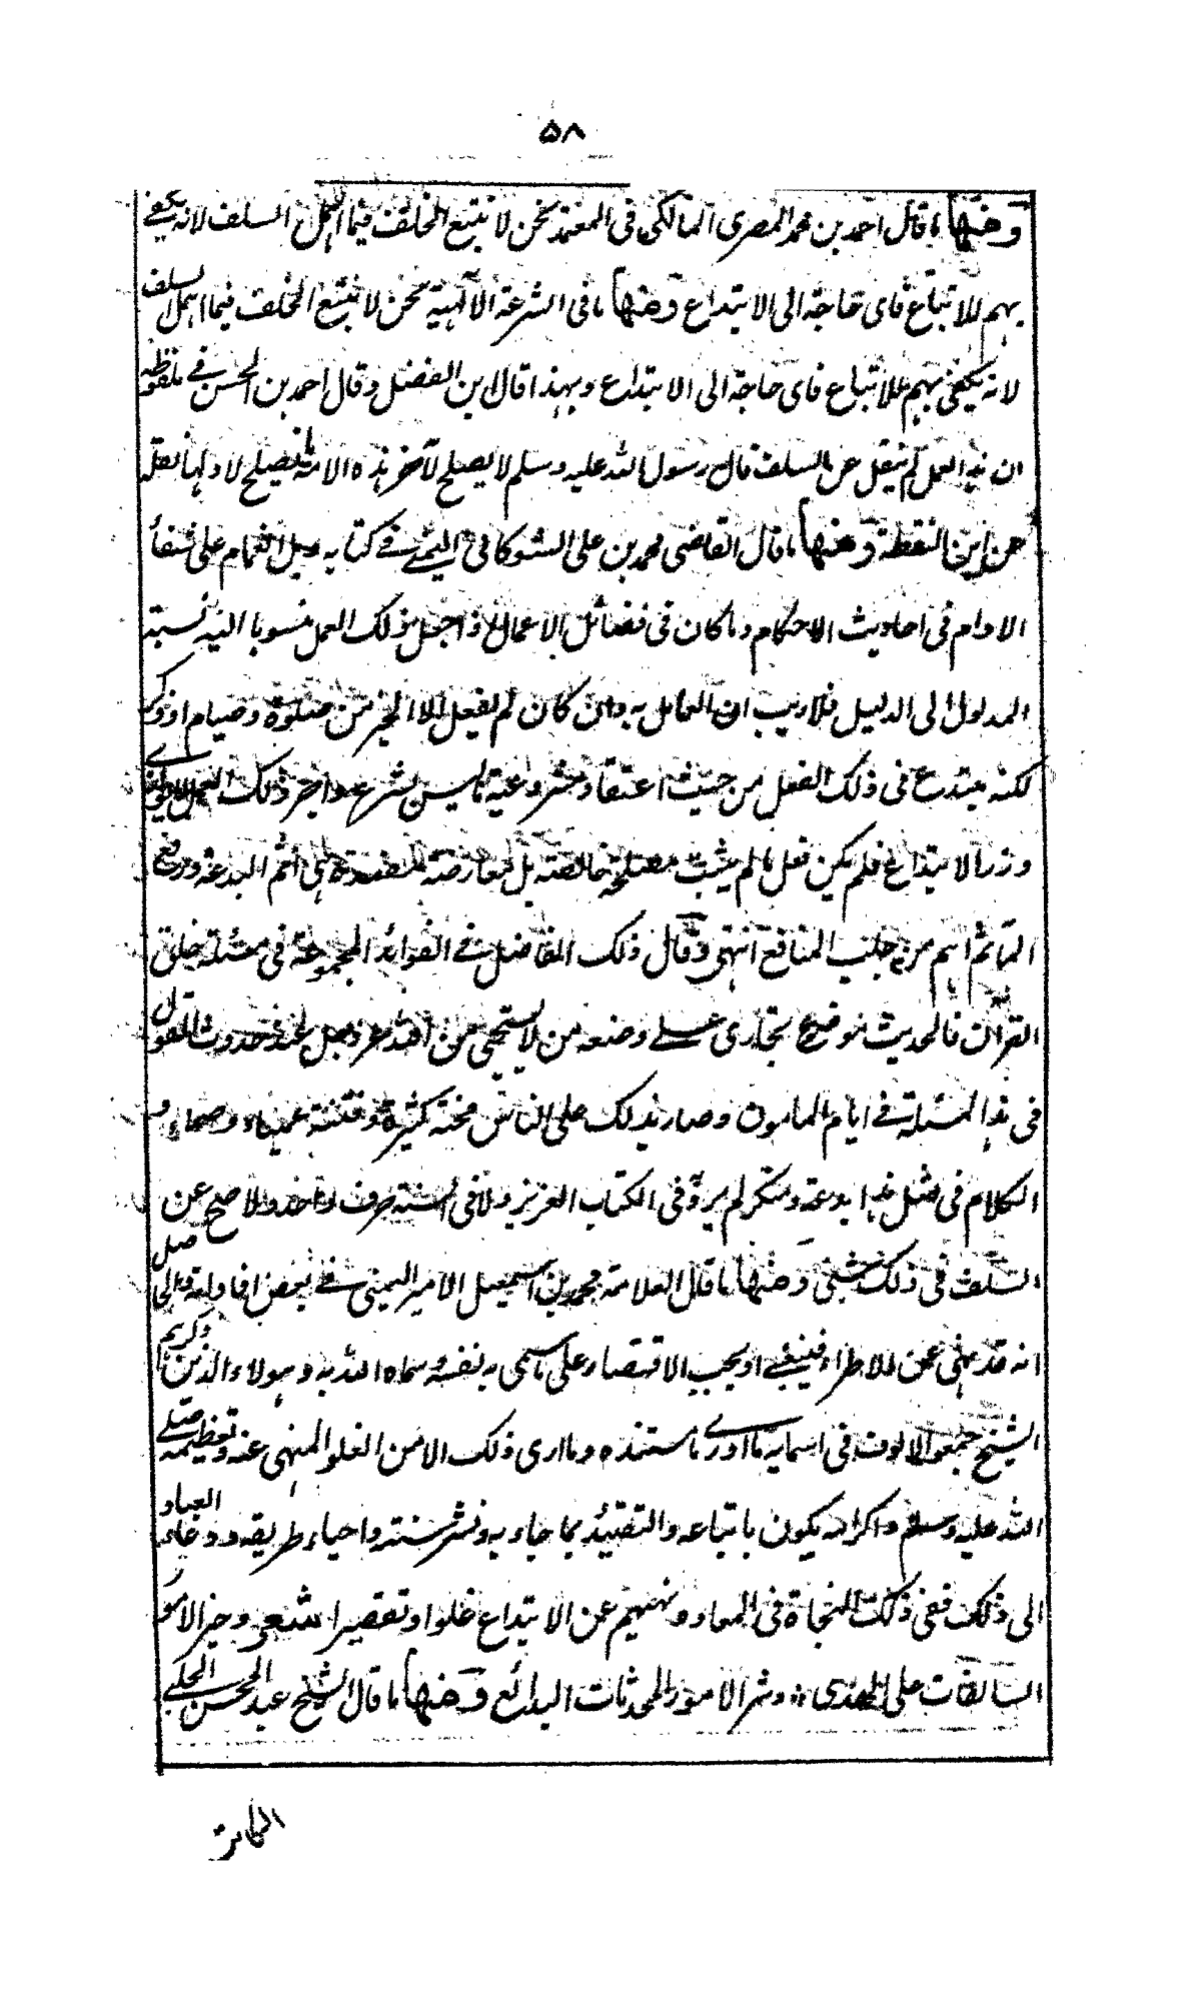 ۵۸
ومنها ما قال احمد بن محمد المصری المالکی فی المعتمد نحن لا نتبع الخلف فیما اهمل السلف لانه یکفی
بهم للاتباع فای حاجة الی الابتداع ومنها ما فی الشرعة الآلهیة نحن لا نتبع الخلف فیما اهمل السلف
لانه یکفی بهم للاتباع فای حاجة الی الابتداع وبهذا قال بن الفضل وقال احمد بن الحسن فی ملفوظه
ان هذا العمل لم ینقل عن السلف قال رسول الله علیه وسلم لا یصلح لآخر هذه الامة ما یصلح لاولها نقله
عن ابن النقطة ومنها ما قال القاضی محمد بن علی الشوکانی الیمنی فی کتابه وبل الغمام علی شفاء
الاوام فی احادیث الاحکام وما کان فی فضائل الاعمال اذا جعل ذلک العمل منسوبا الیه نسبة
المدلول الی الدلیل فلا ریب ان العامل به وان کان لم یفعل الا الخیر من صلوة وصیام او ذکر
لکنه مبتدع فی ذلک الفعل من حیث اعتقاد مشروعیة ما لیس بشرع واجر ذلک العمل لا یوازی
وزر الابتداع فلم یکن فعل ما لم یثبت مصلحة خالصة بل معارضة لمفسدة هی اثم البدعة ودفع
المآثم اهم من جلب المنافع انتهی وقال ذلک الفاضل فی الفوائد المجموعة فی مسئلة خلق
القرآن فالحدیث موضوع تجاری علی وضعه من لا یستحیی من الله عز وجل عند حدوث القول
فی هذا المسئلة فی ایام المامون وصار بذلک علی الناس محنة کثیرة وفتنة عمیاء وصماء و
الکلام فی مثل هذا بدعة ومنکر لم یرد فی الکتاب العزیز ولا فی السنة حرف واحد ولا صح عن
السلف فی ذلک شئی ومنها ما قال العلامة محمد بن اسمعیل الامیر الیمنی فی بعض افاداته والی
انه قد نهی عن الاطراء فینبغی او یجب الاقتصار علی ما سمی به نفسه وسماه الله به وهولاء الذین
الشیخ جمعوا الالوف فی اسمایه ما ادری ما مستنده وما اری ذلک الا من الغلو المنهی عنه وتعظیمه صلی
الله علیه وسلم واکرامه یکون باتباعه والتقید بما جاء به ونشر سنته واحیاء طریقه ودعاء العباد
الی ذلک ففی ذلک النجاة فی المعاد ونهیهم عن الابتداع غلوا وتقصیرا شعر وخیر الامور
السالفات علی الهدی ؛ وشر الامور المحدثات البدائع ومنها ما قال الشیخ عبد المحسن الحلبی